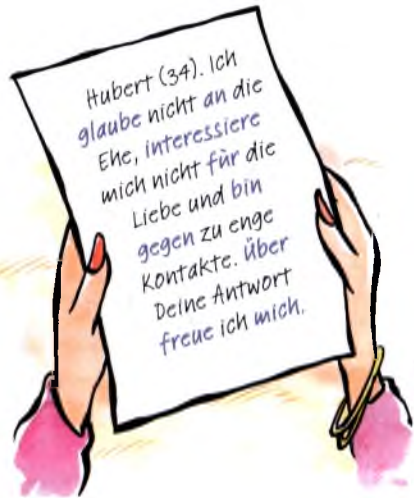 Hubert (34). Ich
glaube nicht an die
Ehe, interessiere
mich nicht für die
Liebe und bin
gegen zu enge
Kontakte. Über
Deine Antwort
freue ich mich.